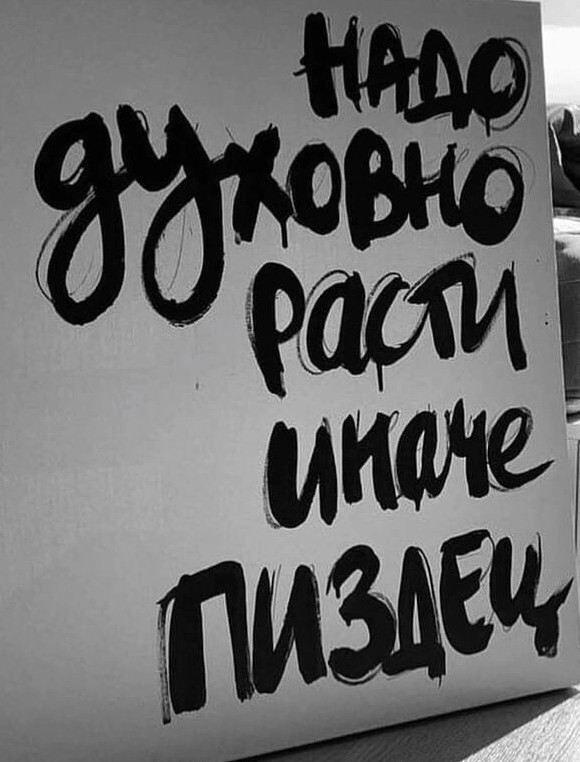 НАДО
духовно
расти
иначе
ПИЗДЕЦ